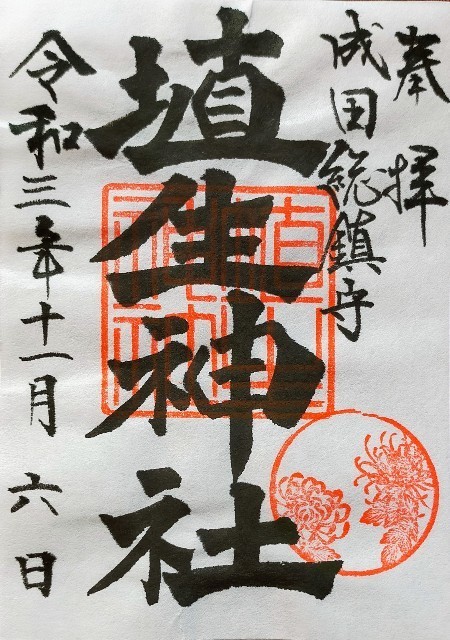 奉拝
成田総鎮守
埴生神社
令和三年十一月六日